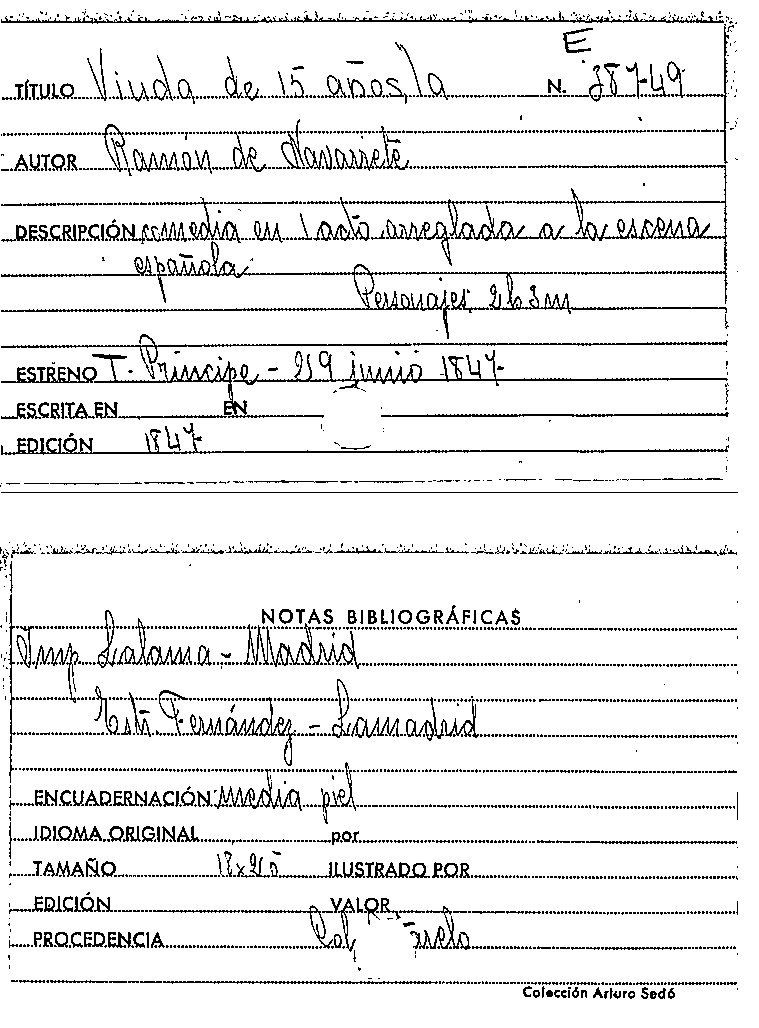 E
TÍTULO Viuda de 15 años, la N. 387-49
AUTOR Ramón de Navarrete
DESCRIPCIÓN comedia en 1 acto arreglada a la escena
española
Personajes 2h 3m
ESTRENO T. Príncipe - 29 junio 1847
ESCRITA EN EN
EDICIÓN 1847
NOTAS BIBLIOGRÁFICAS
Imp Lalama - Madrid
Estr. Fernández - Lamadrid
ENCUADERNACIÓN media piel
IDIOMA ORIGINAL por
TAMAÑO 18x25 ILUSTRADO POR
EDICIÓN VALOR
PROCEDENCIA
Colección Arturo Sedó